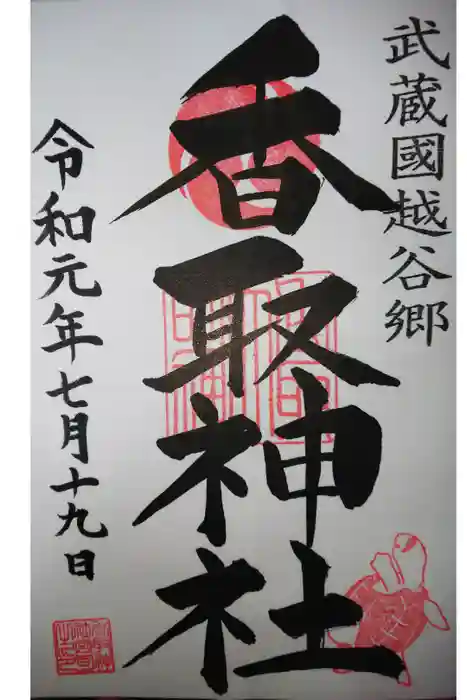 武蔵國越谷郷
香取神社
令和元年七月十九日